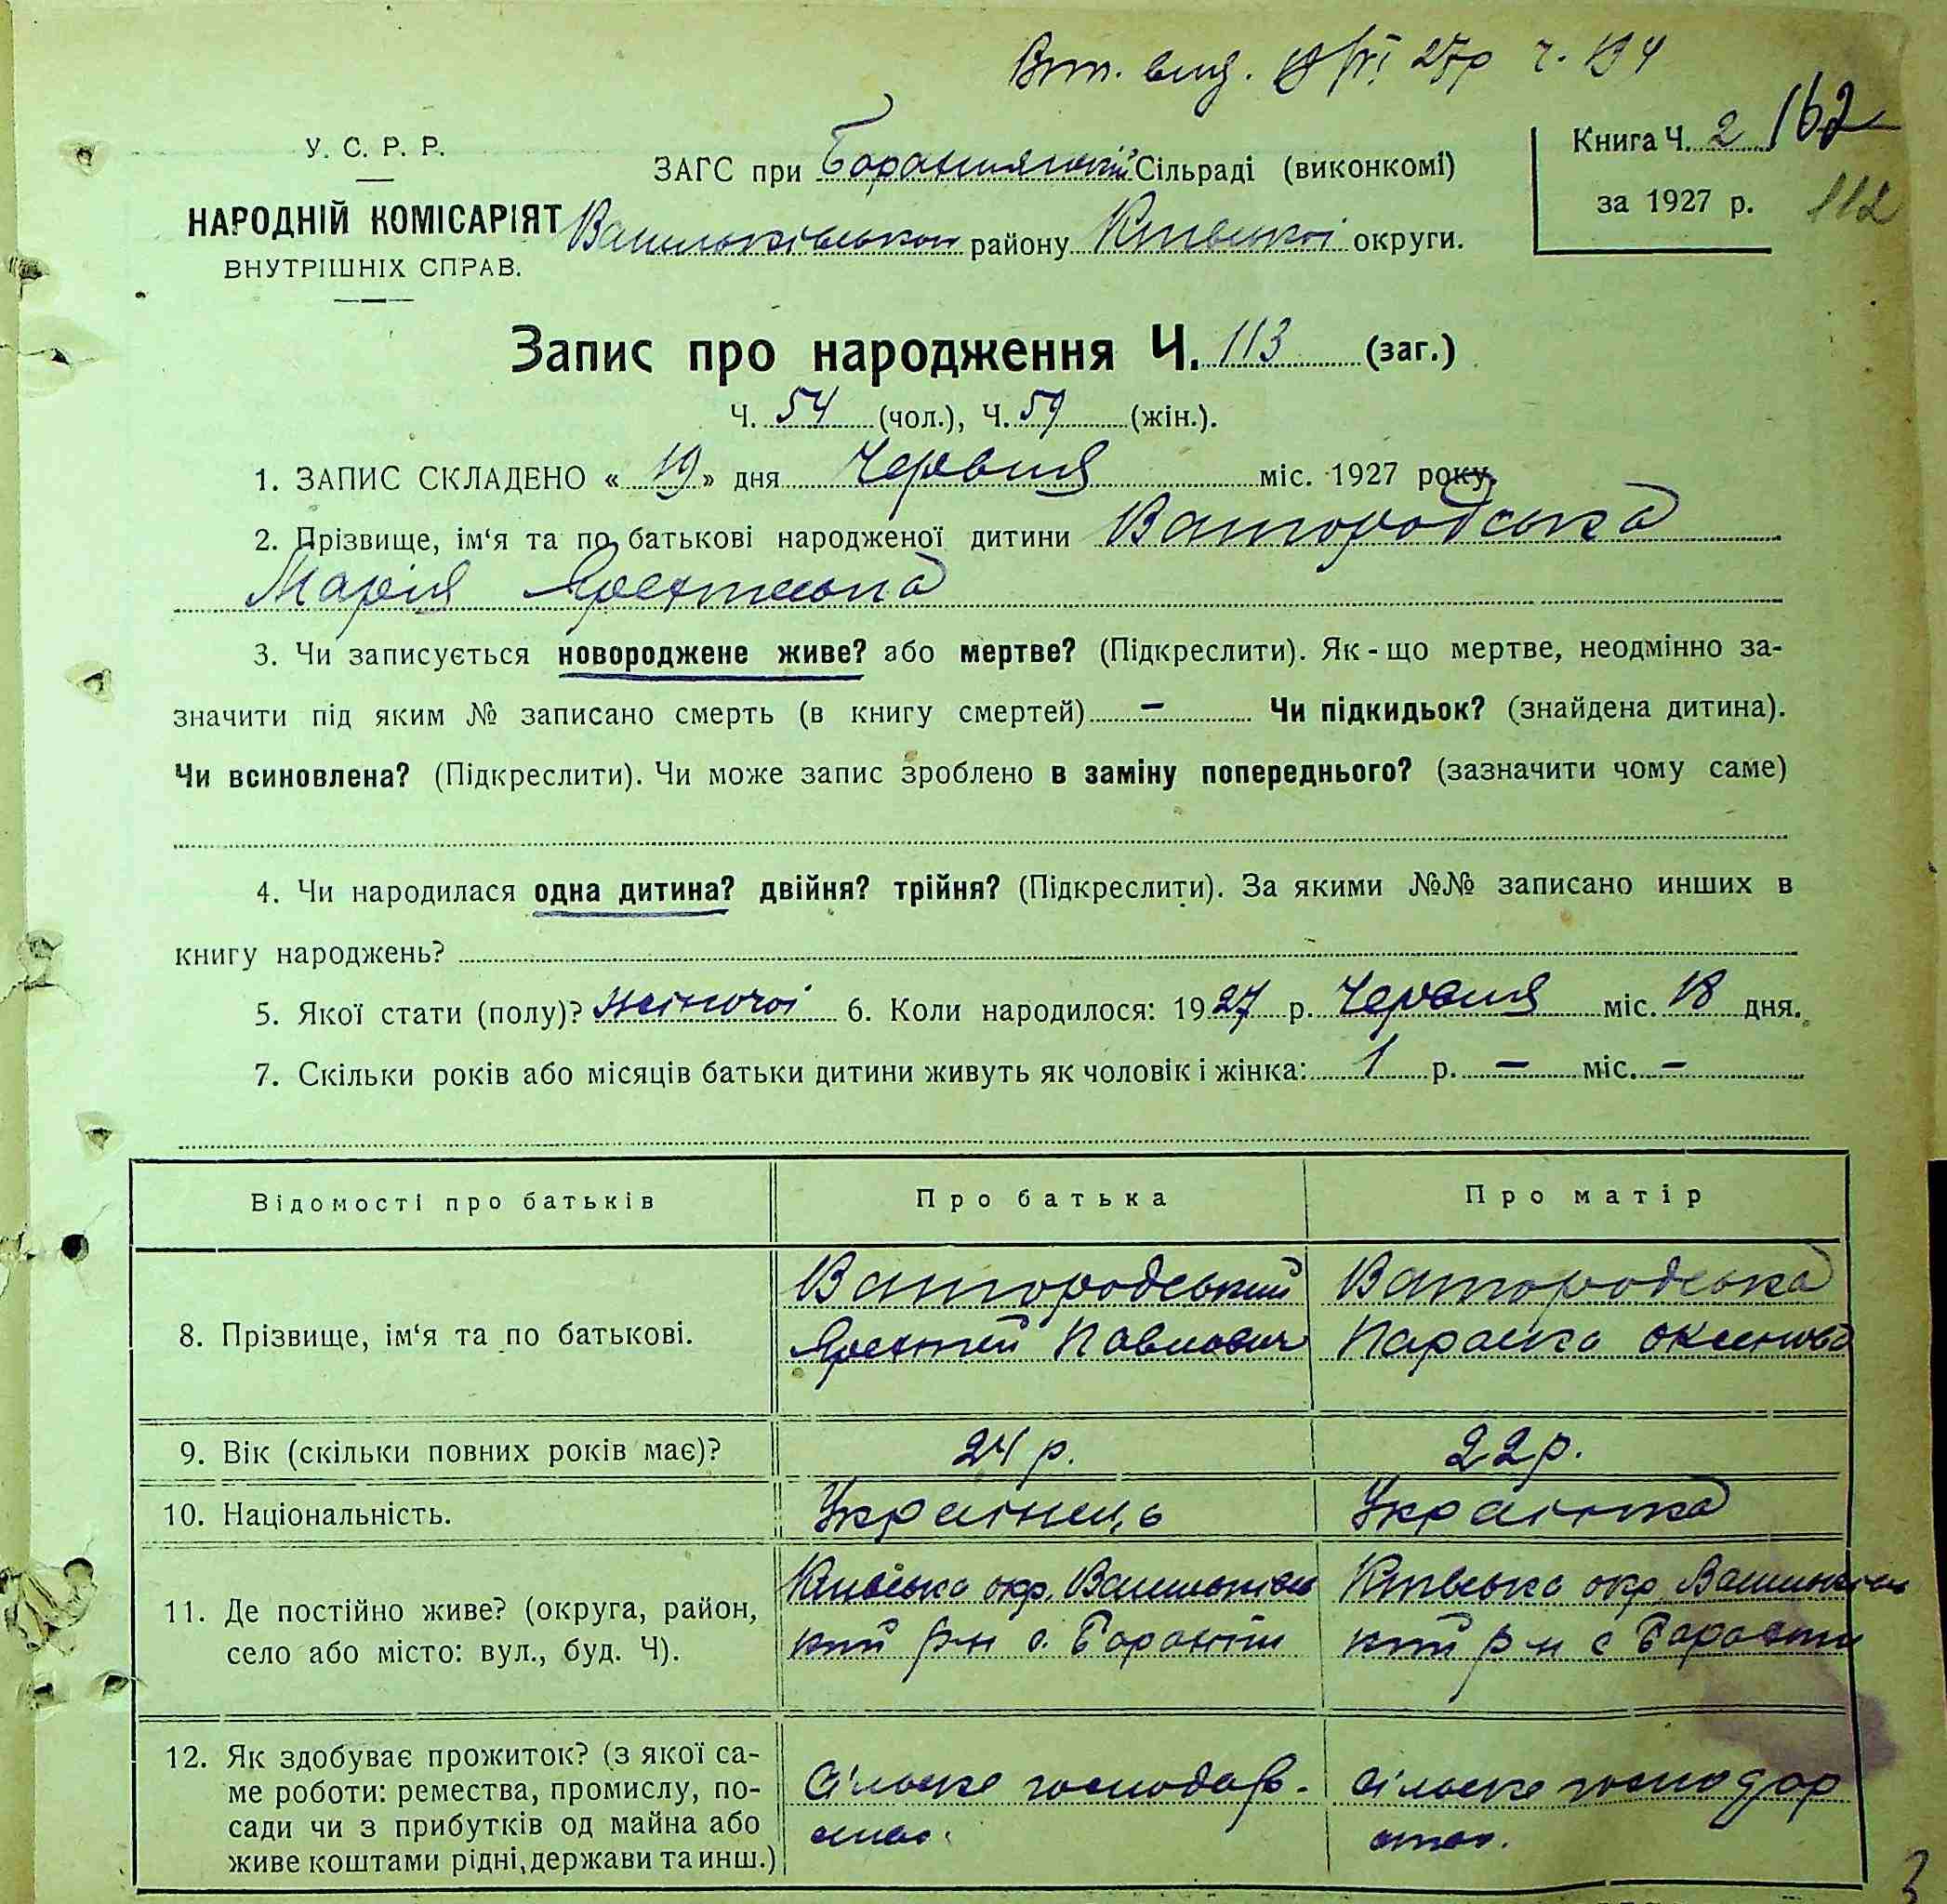 Вит. вид. 19/VI 27р ч. 194
У. С. Р. Р.
НАРОДНІЙ КОМІСАРІЯТ
ВНУТРІШНІХ СПРАВ.
ЗАГС при Сільраді (виконкомі)
району Київської округи.
Книга Ч. 2 162
за 1927 р. 112
Запис про народження Ч. 113 (заг.)
Ч. 54 (чол.), Ч. 59 (жін.).
1. ЗАПИС СКЛАДЕНО « 19 » дня Червня міс. 1927 року.
2. Прізвище, ім‘я та по батькові народженої дитини Вигородська
Марія
3. Чи записується новороджене живе? або мертве? (Підкреслити). Як-що мертве, неодмінно за-
значити під яким № записано смерть (в книгу смертей) — Чи підкидьок? (знайдена дитина).
Чи всиновлена? (Підкреслити). Чи може запис зроблено в заміну попереднього? (зазначити чому саме)
4. Чи народилася одна дитина? двійня? трійня? (Підкреслити). За якими №№ записано инших в
книгу народжень?
5. Якої стати (полу)? жіночоі 6. Коли народилося: 1927 р. Червня міс. 18 дня.
7. Скільки років або місяців батьки дитини живуть як чоловік і жінка: 1 р. — міс. —
Відомості про батьків Про батька Про матір
8. Прізвище, ім‘я та по батькові.
Вигородський
Павлович
Вигородська
Параска
9. Вік (скільки повних років має)? 24 р. 22 р.
10. Національність. Украінець Украінка
11. Де постійно живе? (округа, район,
село або місто: вул., буд. Ч).
Киівська окр. Васильківсь
кий р-н с.
Киівська окр. Васильківсь
кий р-н с
12. Як здобуває прожиток? (з якої са-
ме роботи: ремества, промислу, по-
сади чи з прибутків од майна або
живе коштами рідні, держави та инш.)
Сільске господар-
ство.
Сільске господар
ство.